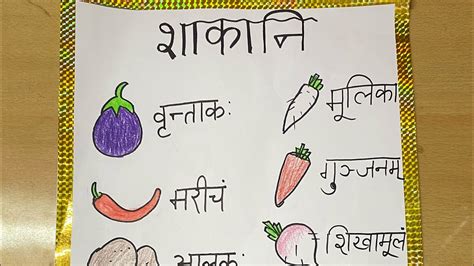 शाकानि
वृन्ताक:
मूलिका
मरीचं
गुञ्जनम्
आलुक:
शिखामूलं